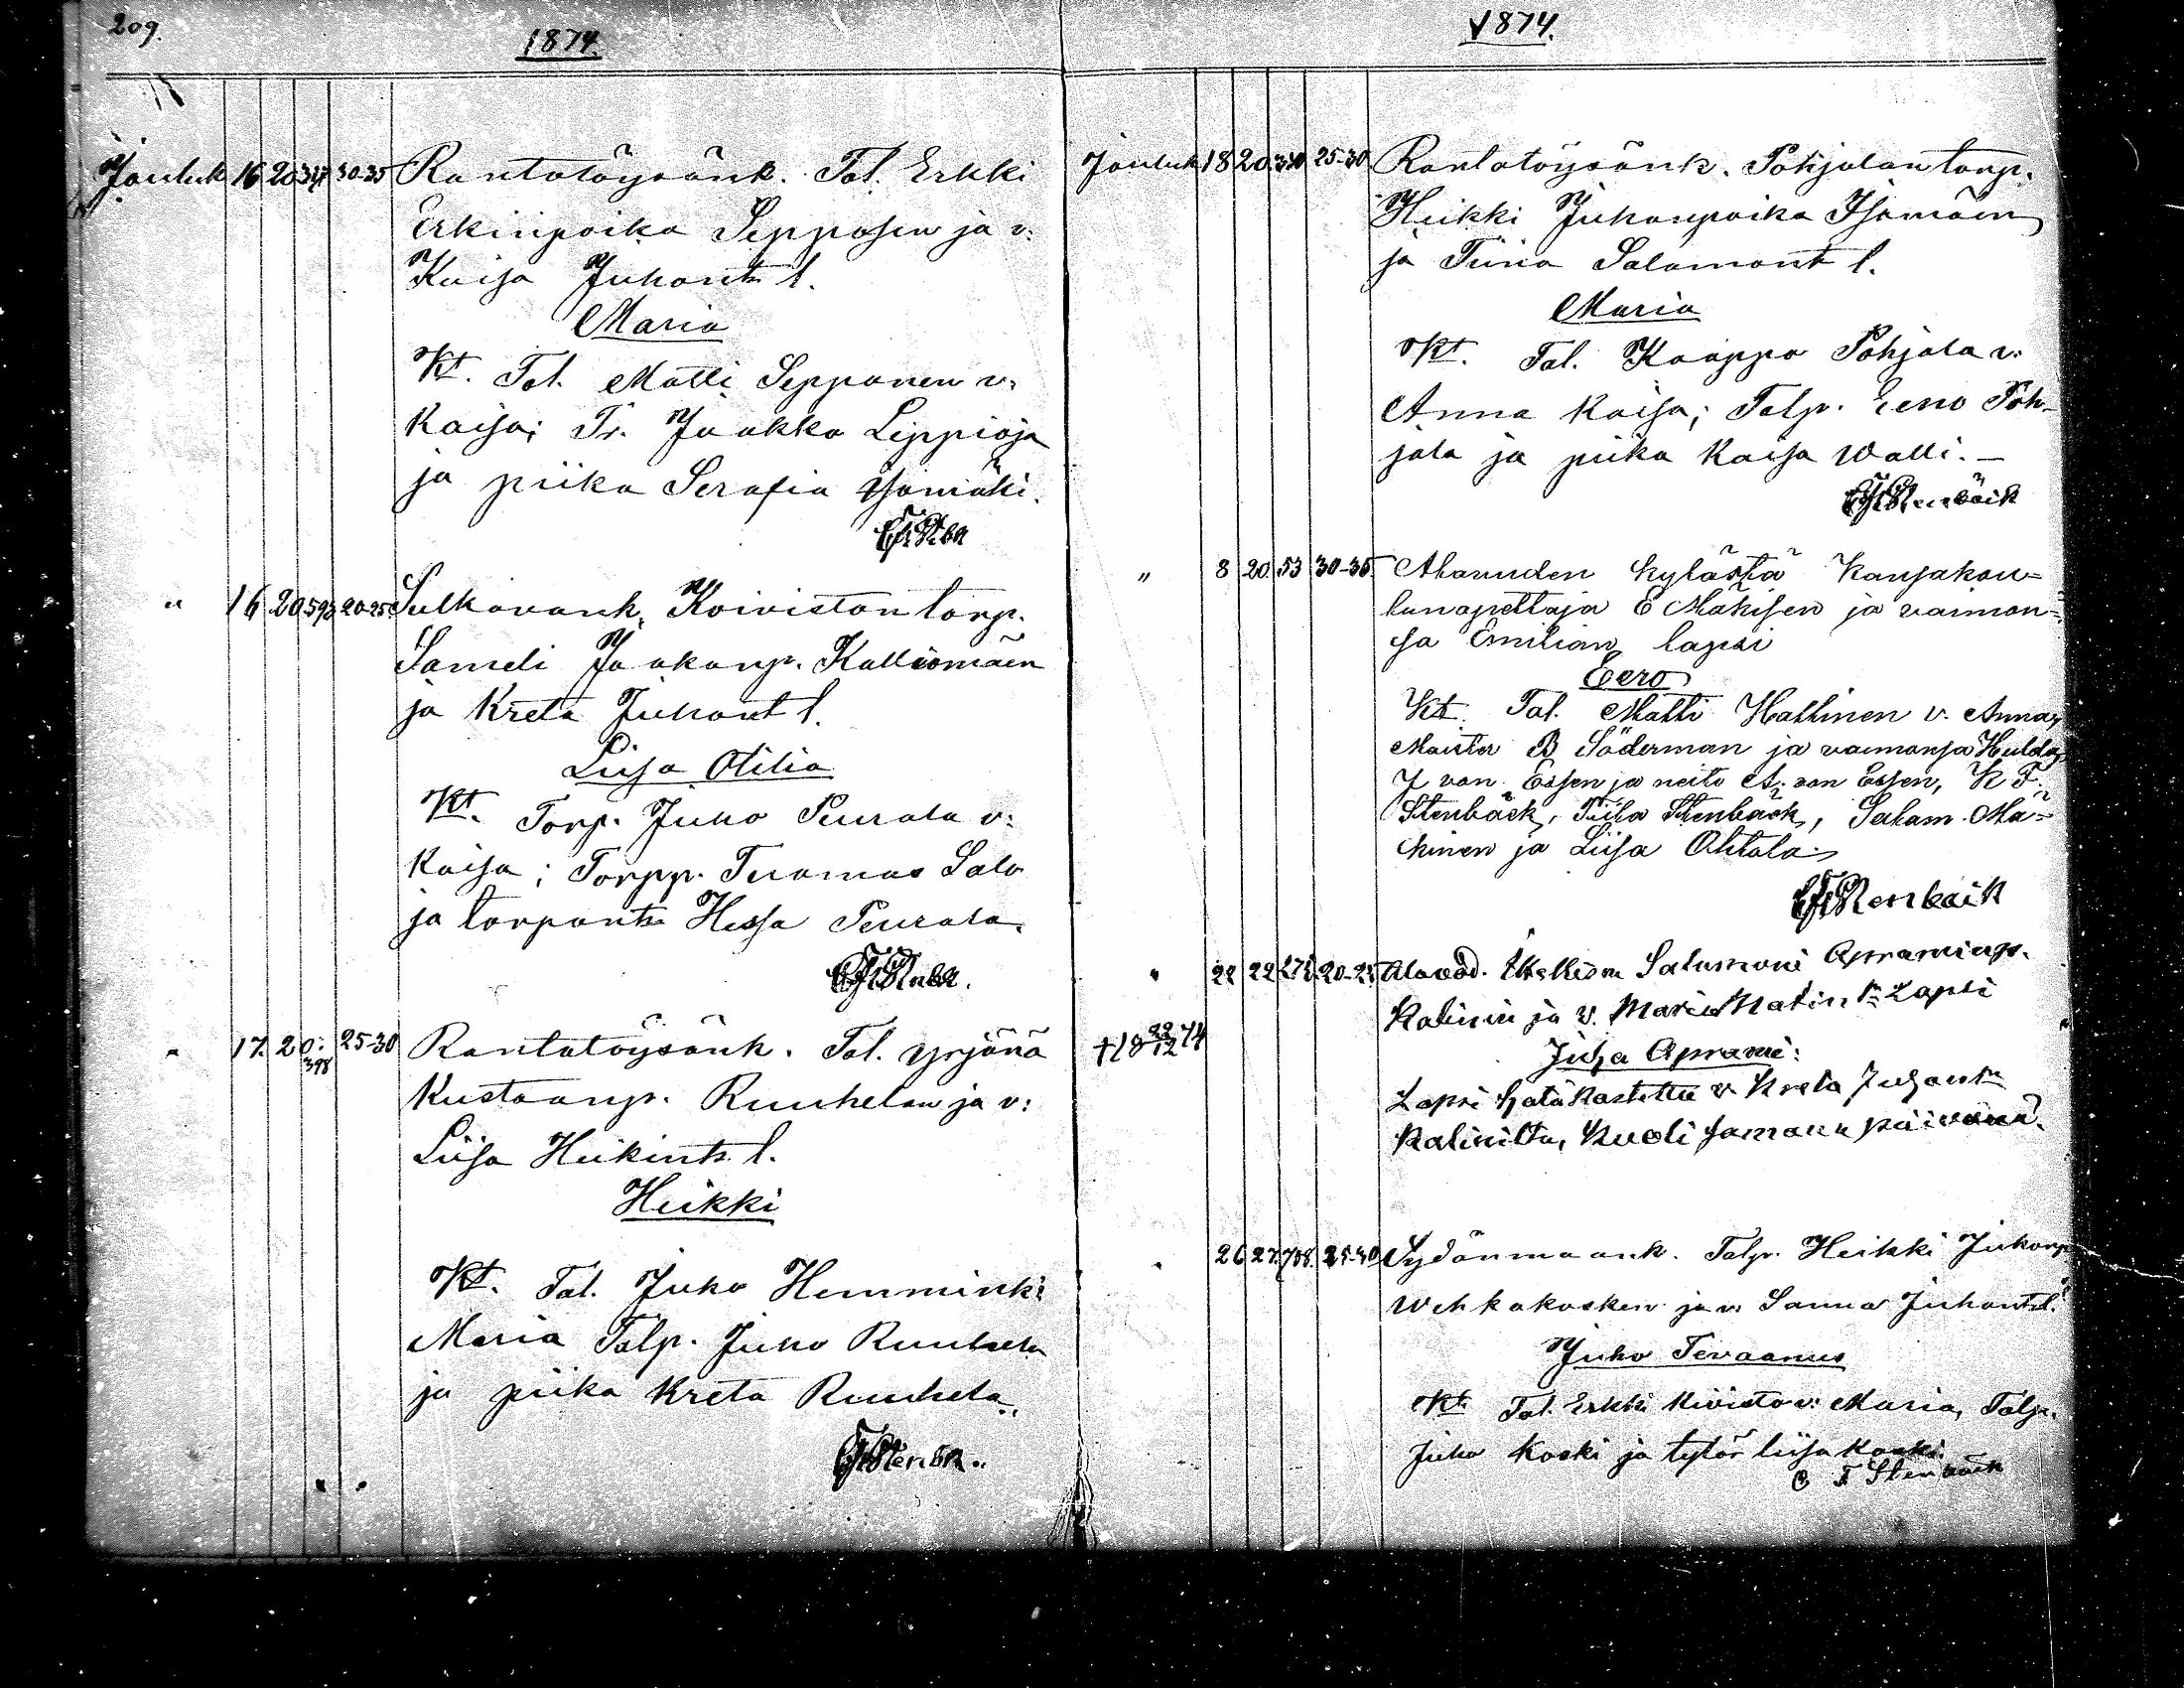 209.
1874.
Jouluk 16 20 317 30-35 Rantatöysänk. Tal. Erkki
Erkinpoika Sepposen ja v:
Kaisa Juhont. l.
Maria
Kt. Tal. Matti Sepponen v:
Kaisa; Tr. Jaakko Leppioja
ja piika Serafia Isomäki.
" 16 20 593 20-25 Sulkavank. Koiviston torp.
Sameli Jaakonp. Kalliomäen
ja Kreta Juhont l.
Liisa Otilia
Kt. Torp. Juho Peurala v:
Kaisa; Torpp. Tuomas Salo
ja torpont. Hessa Peurala.
" 17. 20: 398 25-30 Rantatöysänk. Tal. Yrjönä
Kustaanp. Ruuhelan ja v:
Liisa Heikint. l.
Heikki
Kt. Tal. Juho Hemminki
Maria Talp. Juho Ruuhela
ja piika Kreta Ruuhela.
1874.
Jouluk 18 20 25-30 Rantatöysänk. Pohjalan torp.
Heikki Juhonpoika Isomäen
ja Tiina Salomont l.
Maria
Kt. Tal. Kaappo Pohjala v:
Anna Kaisa; Talp. Eeno Poh-
jala ja piika Kaisa Walli. —
Stenbäck
" 8 20 53 30-35. Alavuden kylästä Kansakou=
lunopettaja E Mäkisen ja vaimon=
sa Emilian lapsi
Eero
Kt. Tal. Matti Hallinen v. Anna,
Maister B Söderman ja vaimonsa Hulda,
J von Essen ja neito A. von Essen, K F.
Stenbäck, Tilda Stenbäck, Salam. Mä=
kinen ja Liisa Ohtola.
Stenbäck
" 22 22 20-25 Alavud. Salomoni Apraminp.
Kalinin ja v. Maria Matin tr. Lapsi
†18 22/12 74
Juha Aprami:
Lapsi hätäkastettu v. Kreta Juhont.
Kalinilta, Kuoli samana päivänä.
" 26 27. 708. 25-30 Sydänmaank. Talp. Heikki Juhonp
Wehkakosken ja v. Sanna Juhont l.
Juho Tevaanus
Kt. Tal. Erkki Kivisto v: Maria, Talp.
Juho Koski ja tytär Liisa Koski.
C F Stenbäck